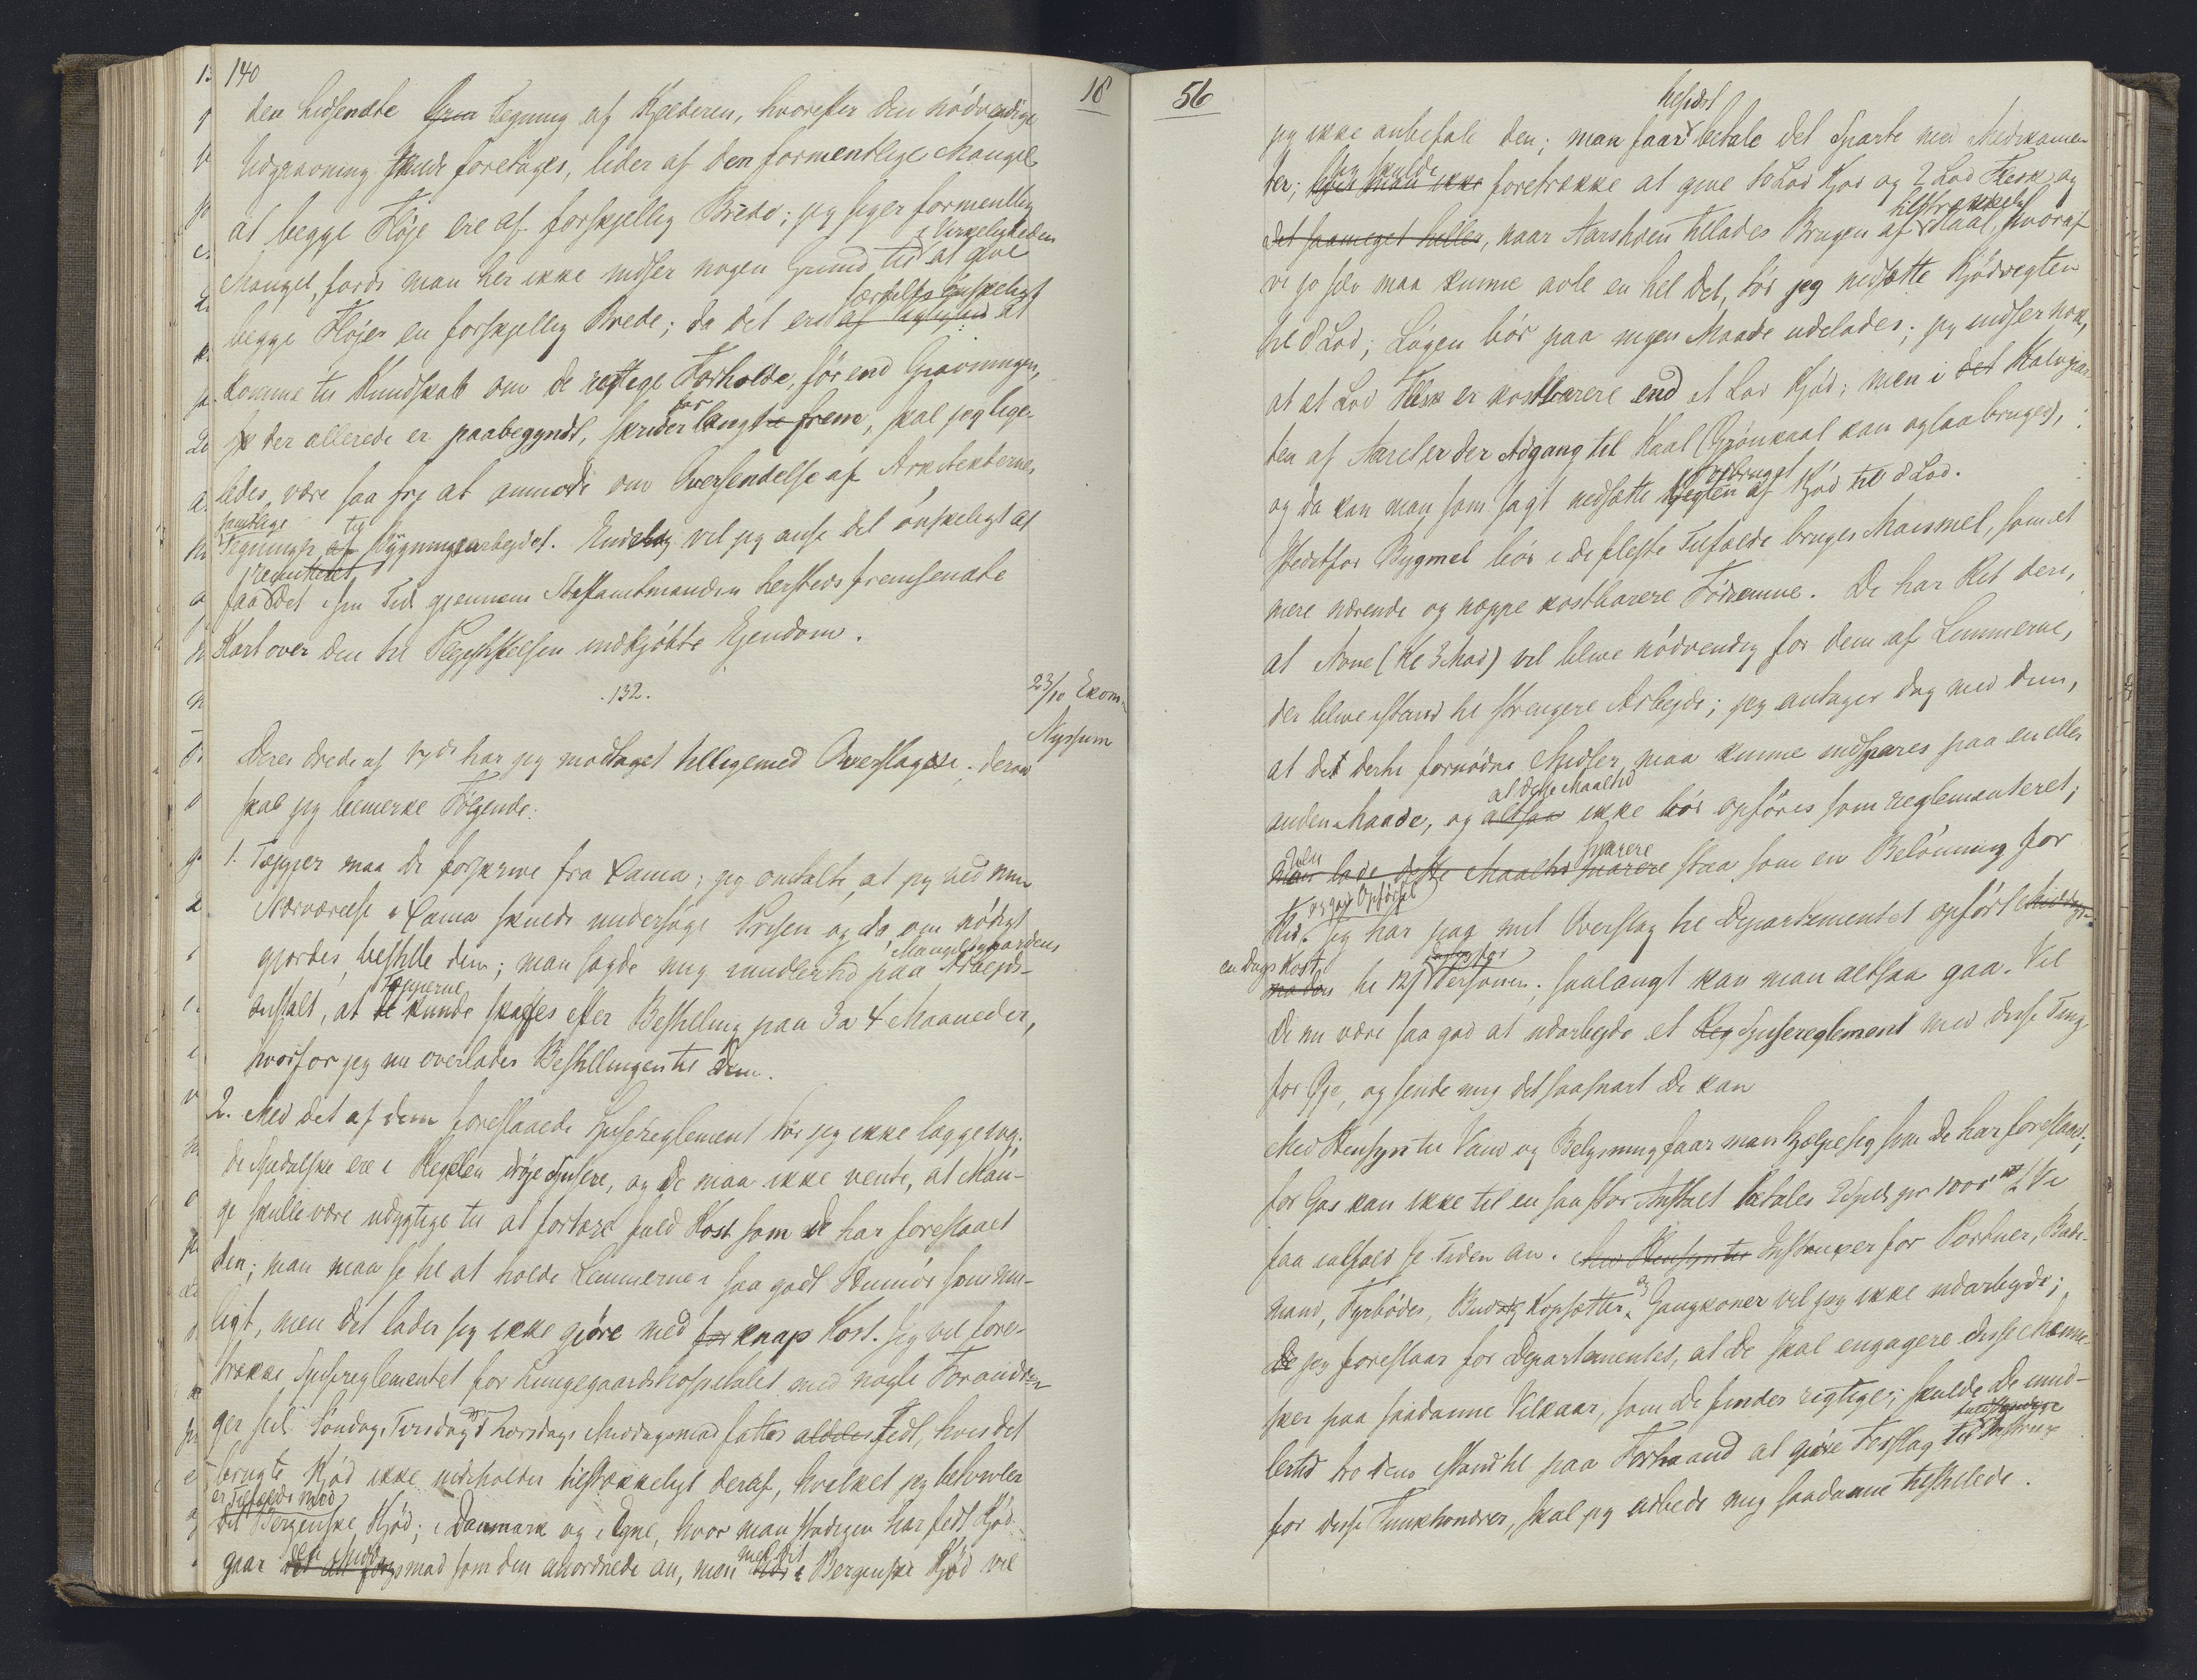 140
den hidsendte Grun Tegning af Kjelderen, hvorefter den nødvendige
Udgravning skulde foretages, lider af den formentlige Mangel
at begge Fløje ere af forskjellig Brede; jeg siger formentlig
Mangel, fordi man her ikke indser nogen Grund til i Virkeligheden at give
begge Fløjer en forskjellig Brede; da det er særdeles ønskeligt at
komme til Kundskab om de rigtige Forholde, før end Gravningen,
der allerede er paabegyndt, skrider for langt frem, skal jeg lige-
ledes være saa fri at anmode om Oversendelse af Arkitektens
samtlige Tegninger til Bygningsarbejdet. Endelig vil jeg anse det ønskeligt at
faa det i sin Tid gjennem Stiftamtmanden hersteds fremsendte
Kart over den til Plejestiftelsen indkjøbte Ejendom.
132.
23/10 Ekom.
Nyssum
Deres Brede af har jeg modtaget tilligemed Overslagene. derom
skal jeg bemerke Følgende:
1. Tæpper maa De forskrive fra Cama; jeg omtalte, at jeg ved min
Nærværelse i Cama skulde undersøge Prisen og da om nødigt
gjordes, bestille dem; man sagde mig imidlertid paa Mangelsgaardens Arbejds-
anstalt, at Tæpperne kunde skaffes efter Bestilling paa 3 a 4 Maaneder,
hvorfor jeg nu overlader Bestillingen til Dem.
2. Med det af Dem foreslaaede Spisereglement tør jeg ikke lægge ivej;
de Spedalske ere i Regelen drøje Spisere, og De maa ikke vente, at Man-
ge skulle være udygtige til at fortære fuld Kost som De har foreslaaet
den; man maa se til at holde Lemmerne i saa godt Humør som mu-
ligt, men det lader sig ikke gjøre med for knap Kost. Jeg vil fore-
trække Spisereglementet for Lungegaardshospitalet med nogle Forandrin-
ger sel. Søndags, Tirsdags og Thorsdags Middagsmad fattes aldeles Fedt, hvis det
brugte Kjød ikke indeholder tilstrækkeligt deraf, hvilket jeg betvivler
er Tilfælde med det Bergenske Kjød; i Danmark og i Egne, hvor man stadigen har fedt Kjød
gaar den Middagsmad som den anordnede an, men med dit Bergenske Kjød vil
18
56
jeg ikke anbefale den; man faar helsidst betale det Sparte med Medikamen-
ter; jeg skulde foretrække at give 10 Lod Kjød og 2 Lod Flesk og
det saameget heller, naar Aarstiden tillades Brugen af tilstrækkelig Kaal, hvoraf
vi jo selv maa kunne avle en hel Del, tør jeg nedsætte Kjødvegten
til 8 Lod; Løgen bør paa ingen Maade udelades; jeg indser nok,
at et Lod Flesk er kostbarere end et Lod Kjød; men i det Halvpar-
ten af Aaret er der Adgang til Kaal (Grønkaal kan ogsaa bruges),
og da kan man som sagt nedsætte Vegten af forbrugt Kjød til 8 Lod.
Istedetfor Bygmel bør i de fleste Tilfælde bruges Maismel, som et
mere nærende og neppe kostbarere Fødeemne. De har Ret deri,
at Avne (Kl 3 Mad) vil blive nødvendig for dem af Lemmerne,
der blive istand til strengere Arbejde; jeg antager dog med Dem,
at det dertil fornødne Midler maa kunne indspares paa en eller
anden Maade, og at dette Maaltid altsaa ikke bør opføres som reglementeret;
man lade dette Maaltid snarere staa som en Belønning for
Flid og god Opførsel. Jeg har paa mit Overslag til Departementet opført Middags-
en Dags Kost maden til 12 ß Personen; saalangt kan man altsaa gaa. Vil
De nu være saa god at udarbejde et Reg Spisereglement med disse Ting
for Øje, og sende mig det saasnart De kan
Med Hensyn til Vand og Belysning faar man hjælpe sig som De har foreslaaet;
for Gas kan ikke til en saa stor Anstalt betales 2 Spd. pr 1000. Vi
faa ialfald se Tiden an. Med Hensyn til Instruxer for Portner, Bade-
mand, Fyrbøder, Bud og Kopsætter og Gangkoner vil jeg ikke udarbejde;
De jeg foreslaar for Departementet, at De skal engagere disse Menne-
sker paa saadanne Vilkaar, som De finder rigtige; skulde De imid-
lertid tro Dem istand til paa Forhaand at gjøre Forslag til fuldstændige Instrux
for disse Funktionærer, skal jeg udbede mig saadanne tilstillede.